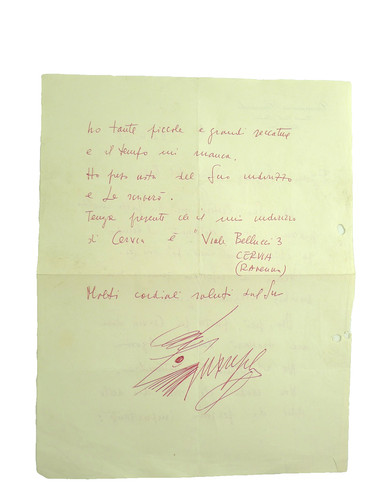 ho tante piccole e grandi seccature
e il tempo mi manca.
Ho preso nota del Suo indirizzo
e Le scriverò.
Tenga presente che il mio indirizzo
di Cervia è "Viale Bellucci 3
CERVIA
(Ravenna)
Molti cordiali saluti dal Suo